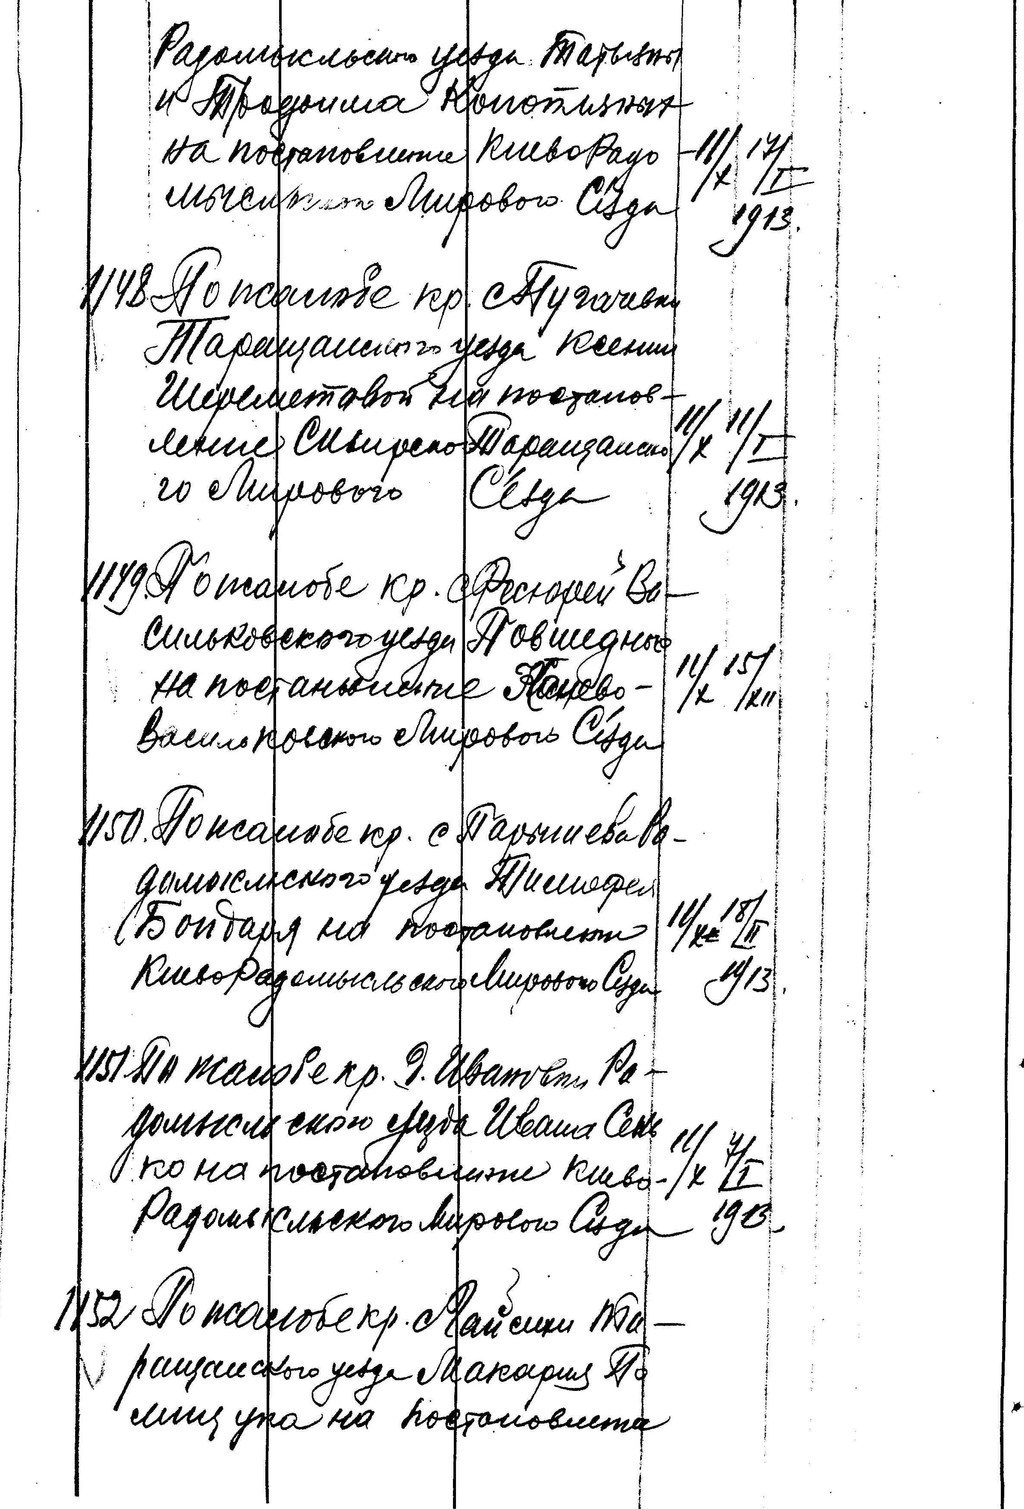 Радомысльского уезда Татьяны
и Трофима
на постановление КиевоРадо
11/X 17/I
мысльского Мирового Съезда
1913.
1148 По жалобе кр. с Пугачевки
Таращанского уезда Ксении
Шереметовой на постанов-
ление Сквирско Таращанско
11/X 11/I
го Мирового Съезда
1913.
1149. По жалобе кр. с Фастовей Ва-
сильковского уезда
на постановление Киево-
11/X 15/XII
Васильковского Мирового Съезда
1150. По жалобе кр. с Ра-
домысльского уезда Тимофея
Бондаря на постановление
11/X 18/II
КиевоРадомысльского Мирового Съезда
1913.
1151 По жалобе кр. д. Ивановки Ра-
домысльского уезда Ивана Сень
ко на постановление Киево-
11/X 7/I
Радомысльского Мирового Съезда
1913.
1152 По жалобе кр. с Лайсики Та-
ращанского уезда Макария По
лищука на постановление